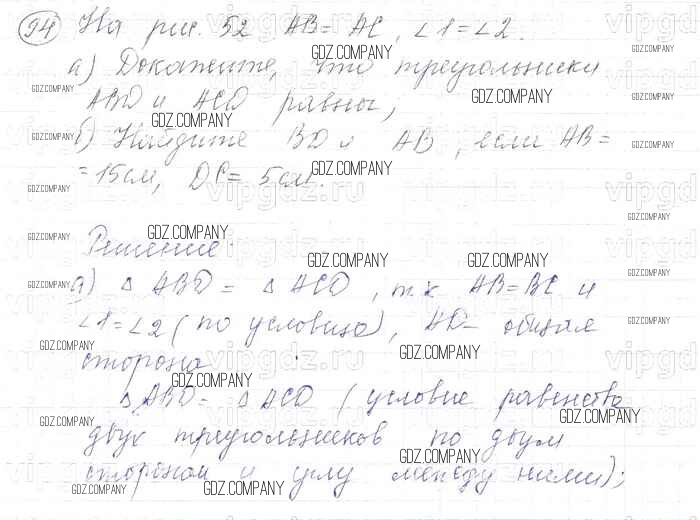 94) На рис. 52 AB = AC, ∠1 = ∠2.
а) Докажите, что треугольники
ABD и ACD равны;
б) Найдите BD и AB, если AB =
= 15 см, DC = 5 см.
Решение.
а) △ ABD = △ ACD, т.к. AB = BC и
∠1 = ∠2 (по условию), AD - общая
сторона
△ ABD = △ ACD (условие равенства
двух треугольников по двум
сторонам и углу между ними);